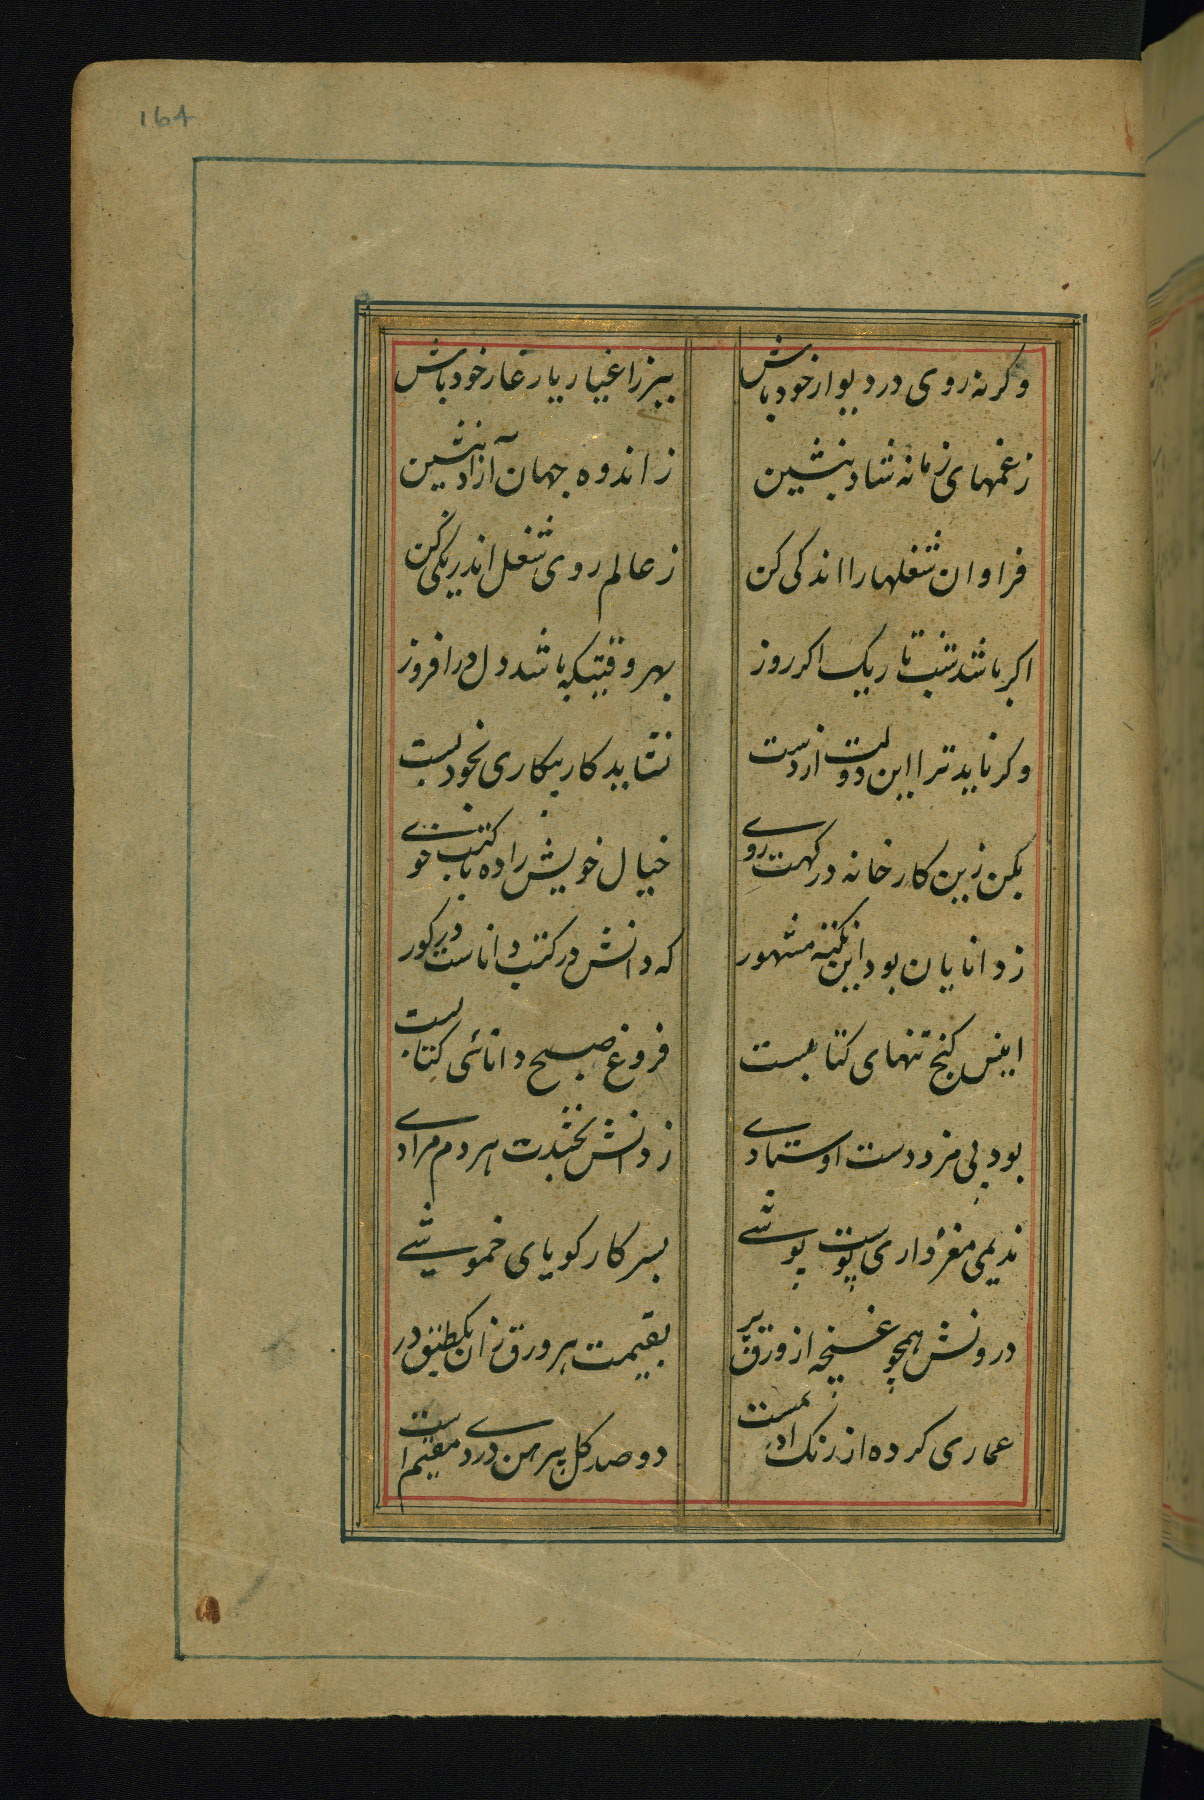 164
وکرنه روی در دیوار خود باش
ببر ز اغیار یار غار خود باش
ز غمهای زمانه شاد بنشین
ز اندوه جهان آزاد بنشین
فراوان شغلها را اندکی کن
ز عالم روی شغل اندر یکی کن
اکر باشد شب تاریک اکر روز
بهر وقتیکه باشد دل در افروز
وکر ناید ترا این دولت از دست
نشاید کار بیکاری بخود بست
بکن زین کارخانه در کهت روی
خیال خویش را ده با کتب خوی
ز دانایان بود این نکته مشهور
که دانش در کتب دانا است در کور
انیس کنج تنهای کتابست
فروغ صبح دانائی کتاب است
بود بی مزد دست اوستادی
ز دانش بخشدت هر دم مرادی
ندیمی مغز داری پوست پوشی
بسر کار کویای خموشی
درونش همچو غنچه از ورق پر
بقیمت هر ورق زان یکطبق در
عماری کرده از رنک ادیمست
دو صد کل پیرهن در وی مقیم است